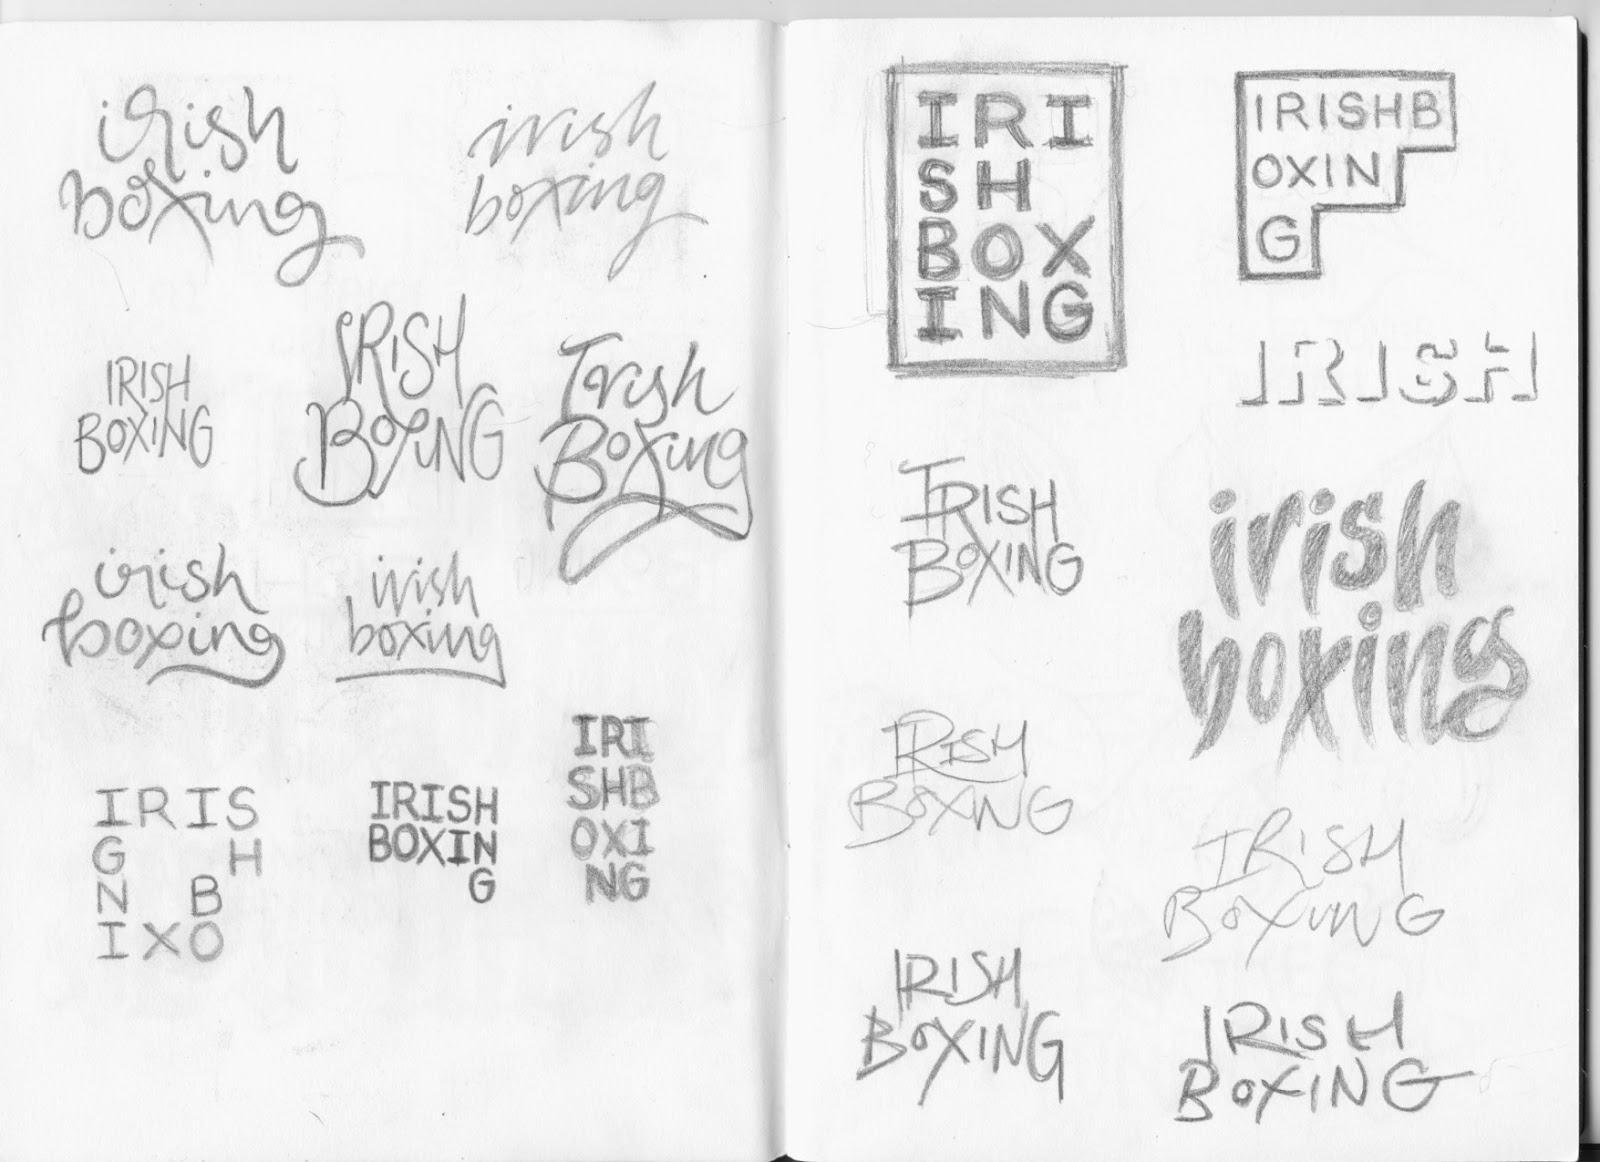 irish
boxing
irish
boxing
IRISH
BOXING
IRISH
BOXING
Irish
Boxing
irish
boxing
irish
boxing
IRIS
G H
N B
I X O
IRISH
BOXIN
G
IRI
SHB
OXI
NG
IRI
SH
BOX
ING
IRISHB
OXIN
G
IRISH
IRISH
BOXING
irish
boxing
IRISH
BOXING
IRISH
BOXING
IRISH
BOXING
IRISH
BOXING